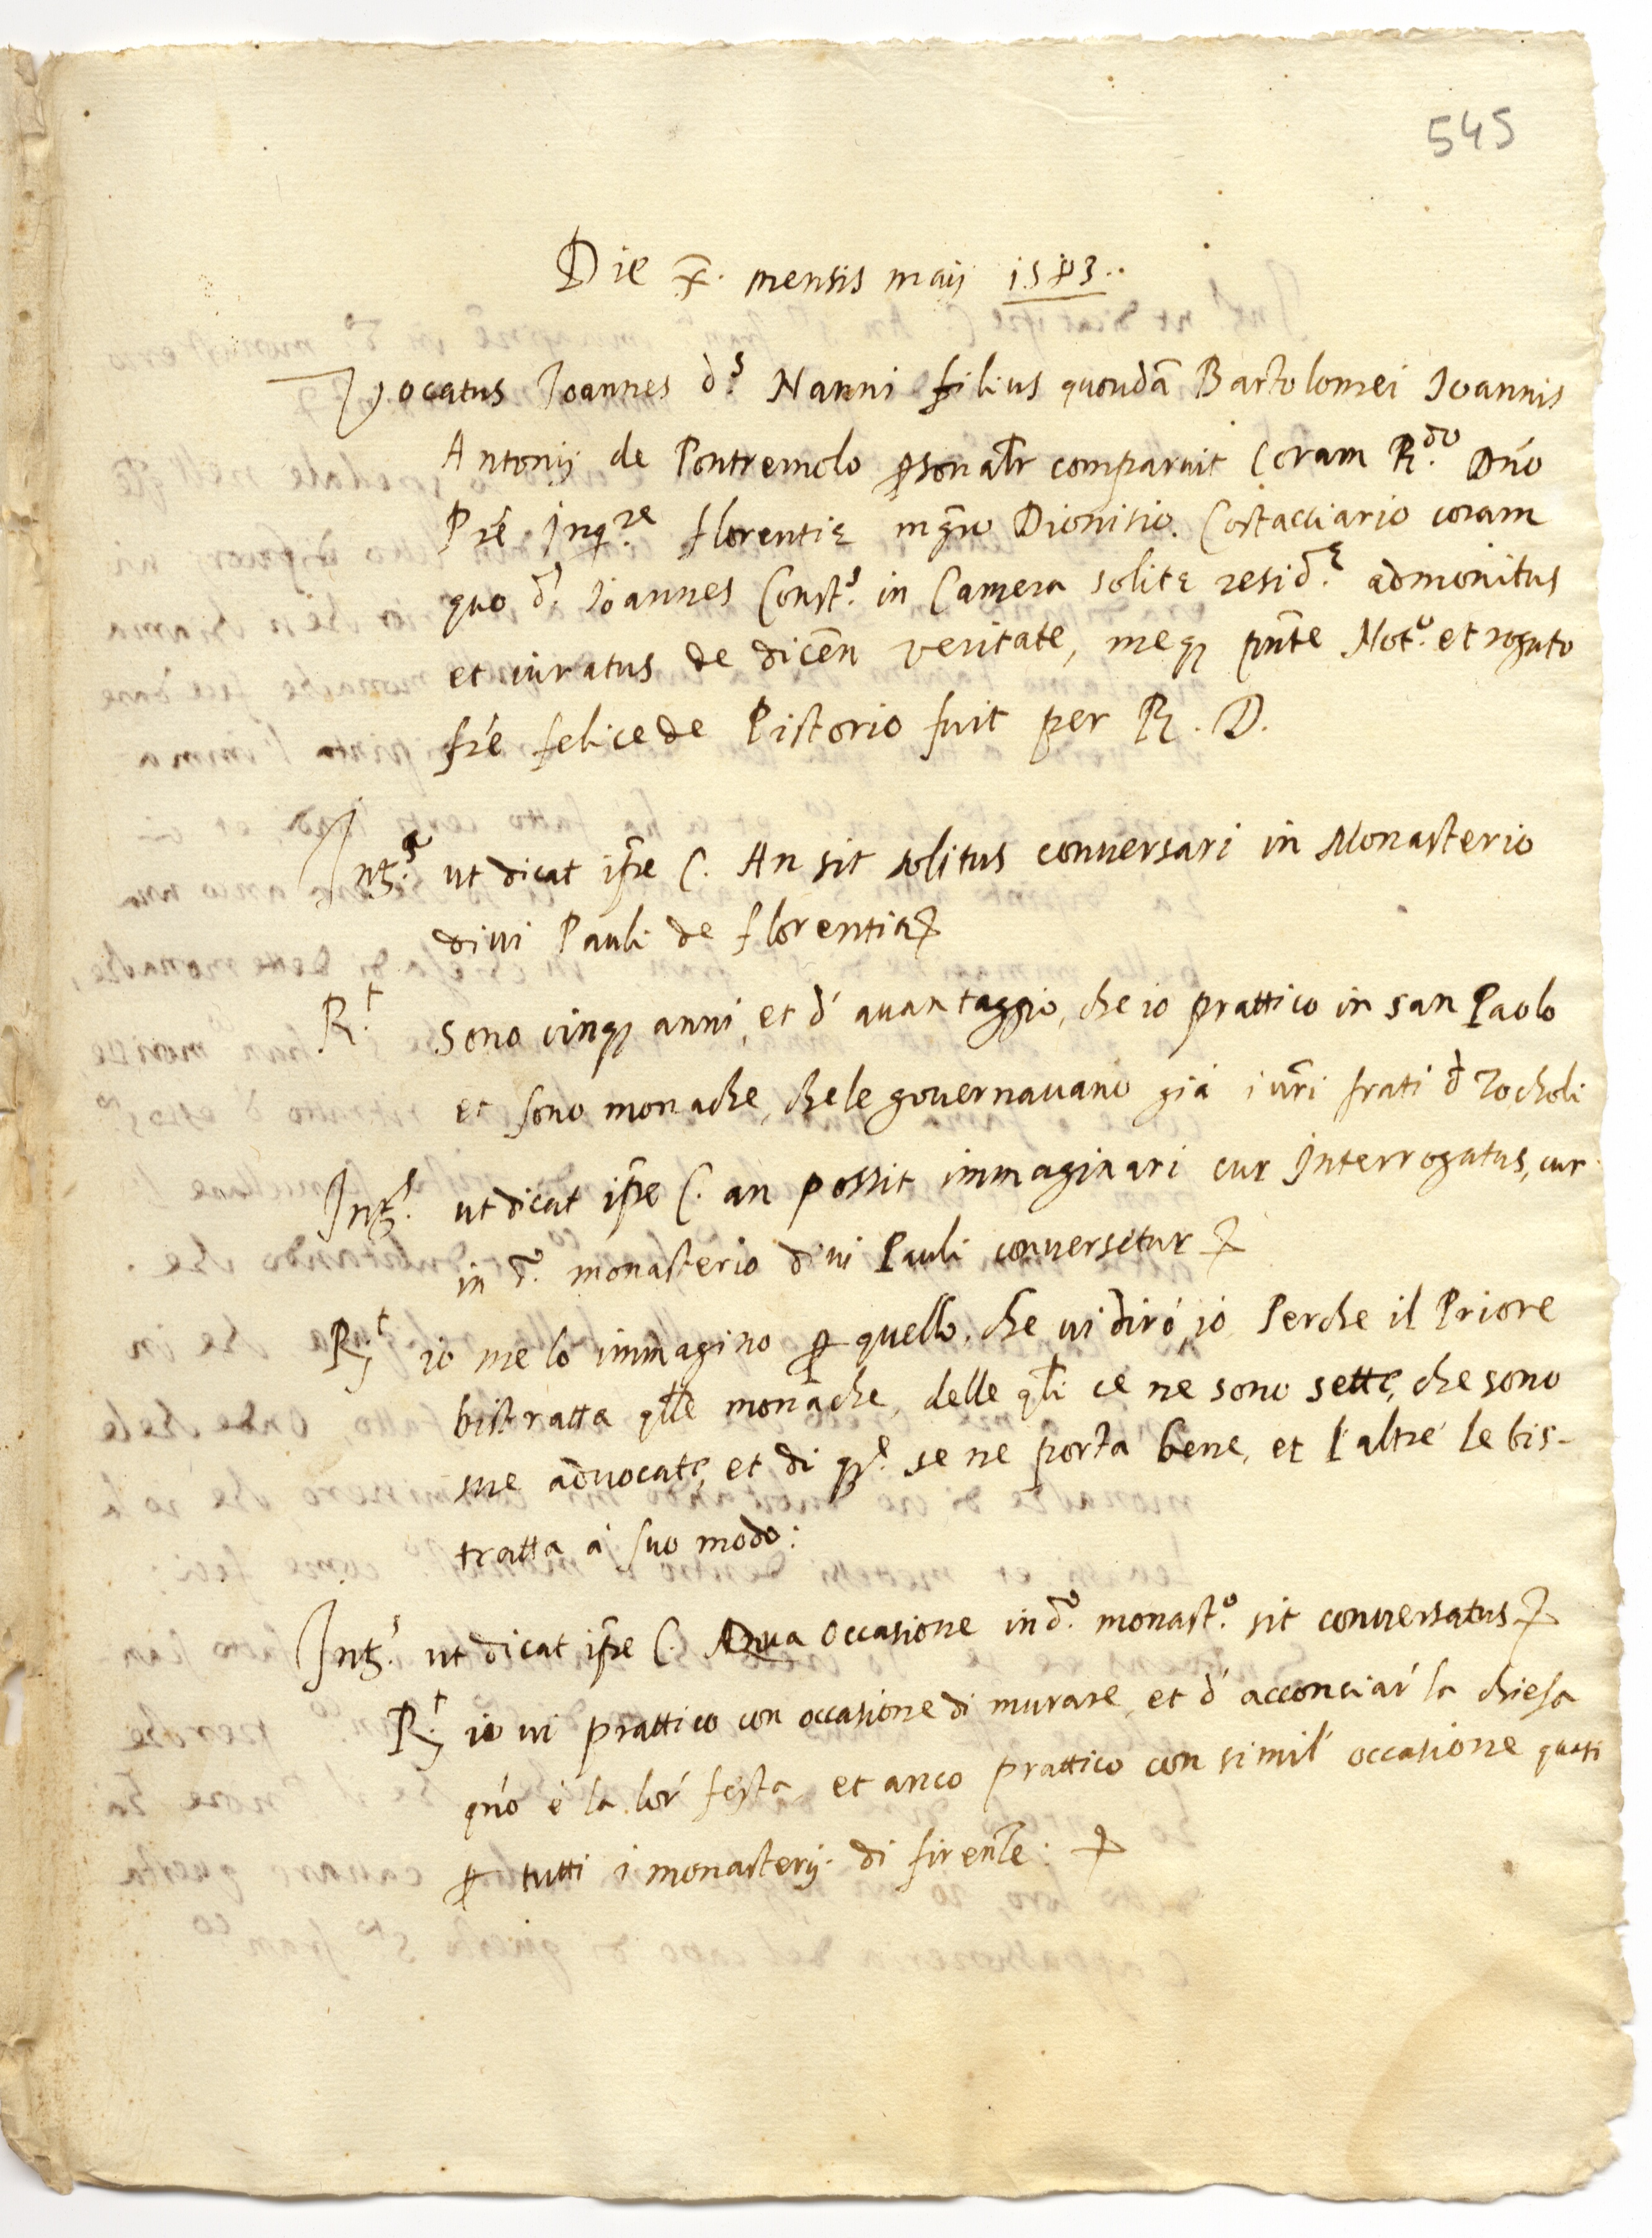 545
Die x. mensis maij 1583..
Vocatus Joannes d.s Nanni filius quondã Bartolomei Joannis
Antonij de Pontremolo psonalr comparuit Coram R.do Dño
Pre Inq.re florentie mgro Dionisio Costacciario coram
quo d. Joannes Const.s in Camera solite resid.e admonitus
et iuratus de dicen veritate, meq pnte Not.o et rogato
fre felice de Pistorio fuit per R. D.
Intg.s ut dicat ipse C. An sit solitus conversari in Monasterio
divi Pauli de florentia
R.t sono cinq anni, et d' avantaggio, che io prattico in san Paolo
et sono monache, che le governavano già i vri frati d Zocholi
Intg.s ut dicat ipse C. an possit immaginari cur Interrogatus, cur
in d.o monasterio divi Pauli conversetur
R.t io me lo immagino p quello, che vi dirò io Perche il Priore
bistratta qlle monache, delle qli ce ne sono sette, che sono
sue advocate, et di qs.e se ne porta bene, et l'altre le bis-
tratta à suo modo:
Intg.s ut dicat ipse C. qua occasione in d.o monast.o sit conversatus
R.t io vi prattico con occasione di murare, et d' acconciar la chiesa
qño è la lor festa, et anco prattico con simil' occasione quasi
p tutti i monasterij di firenze: